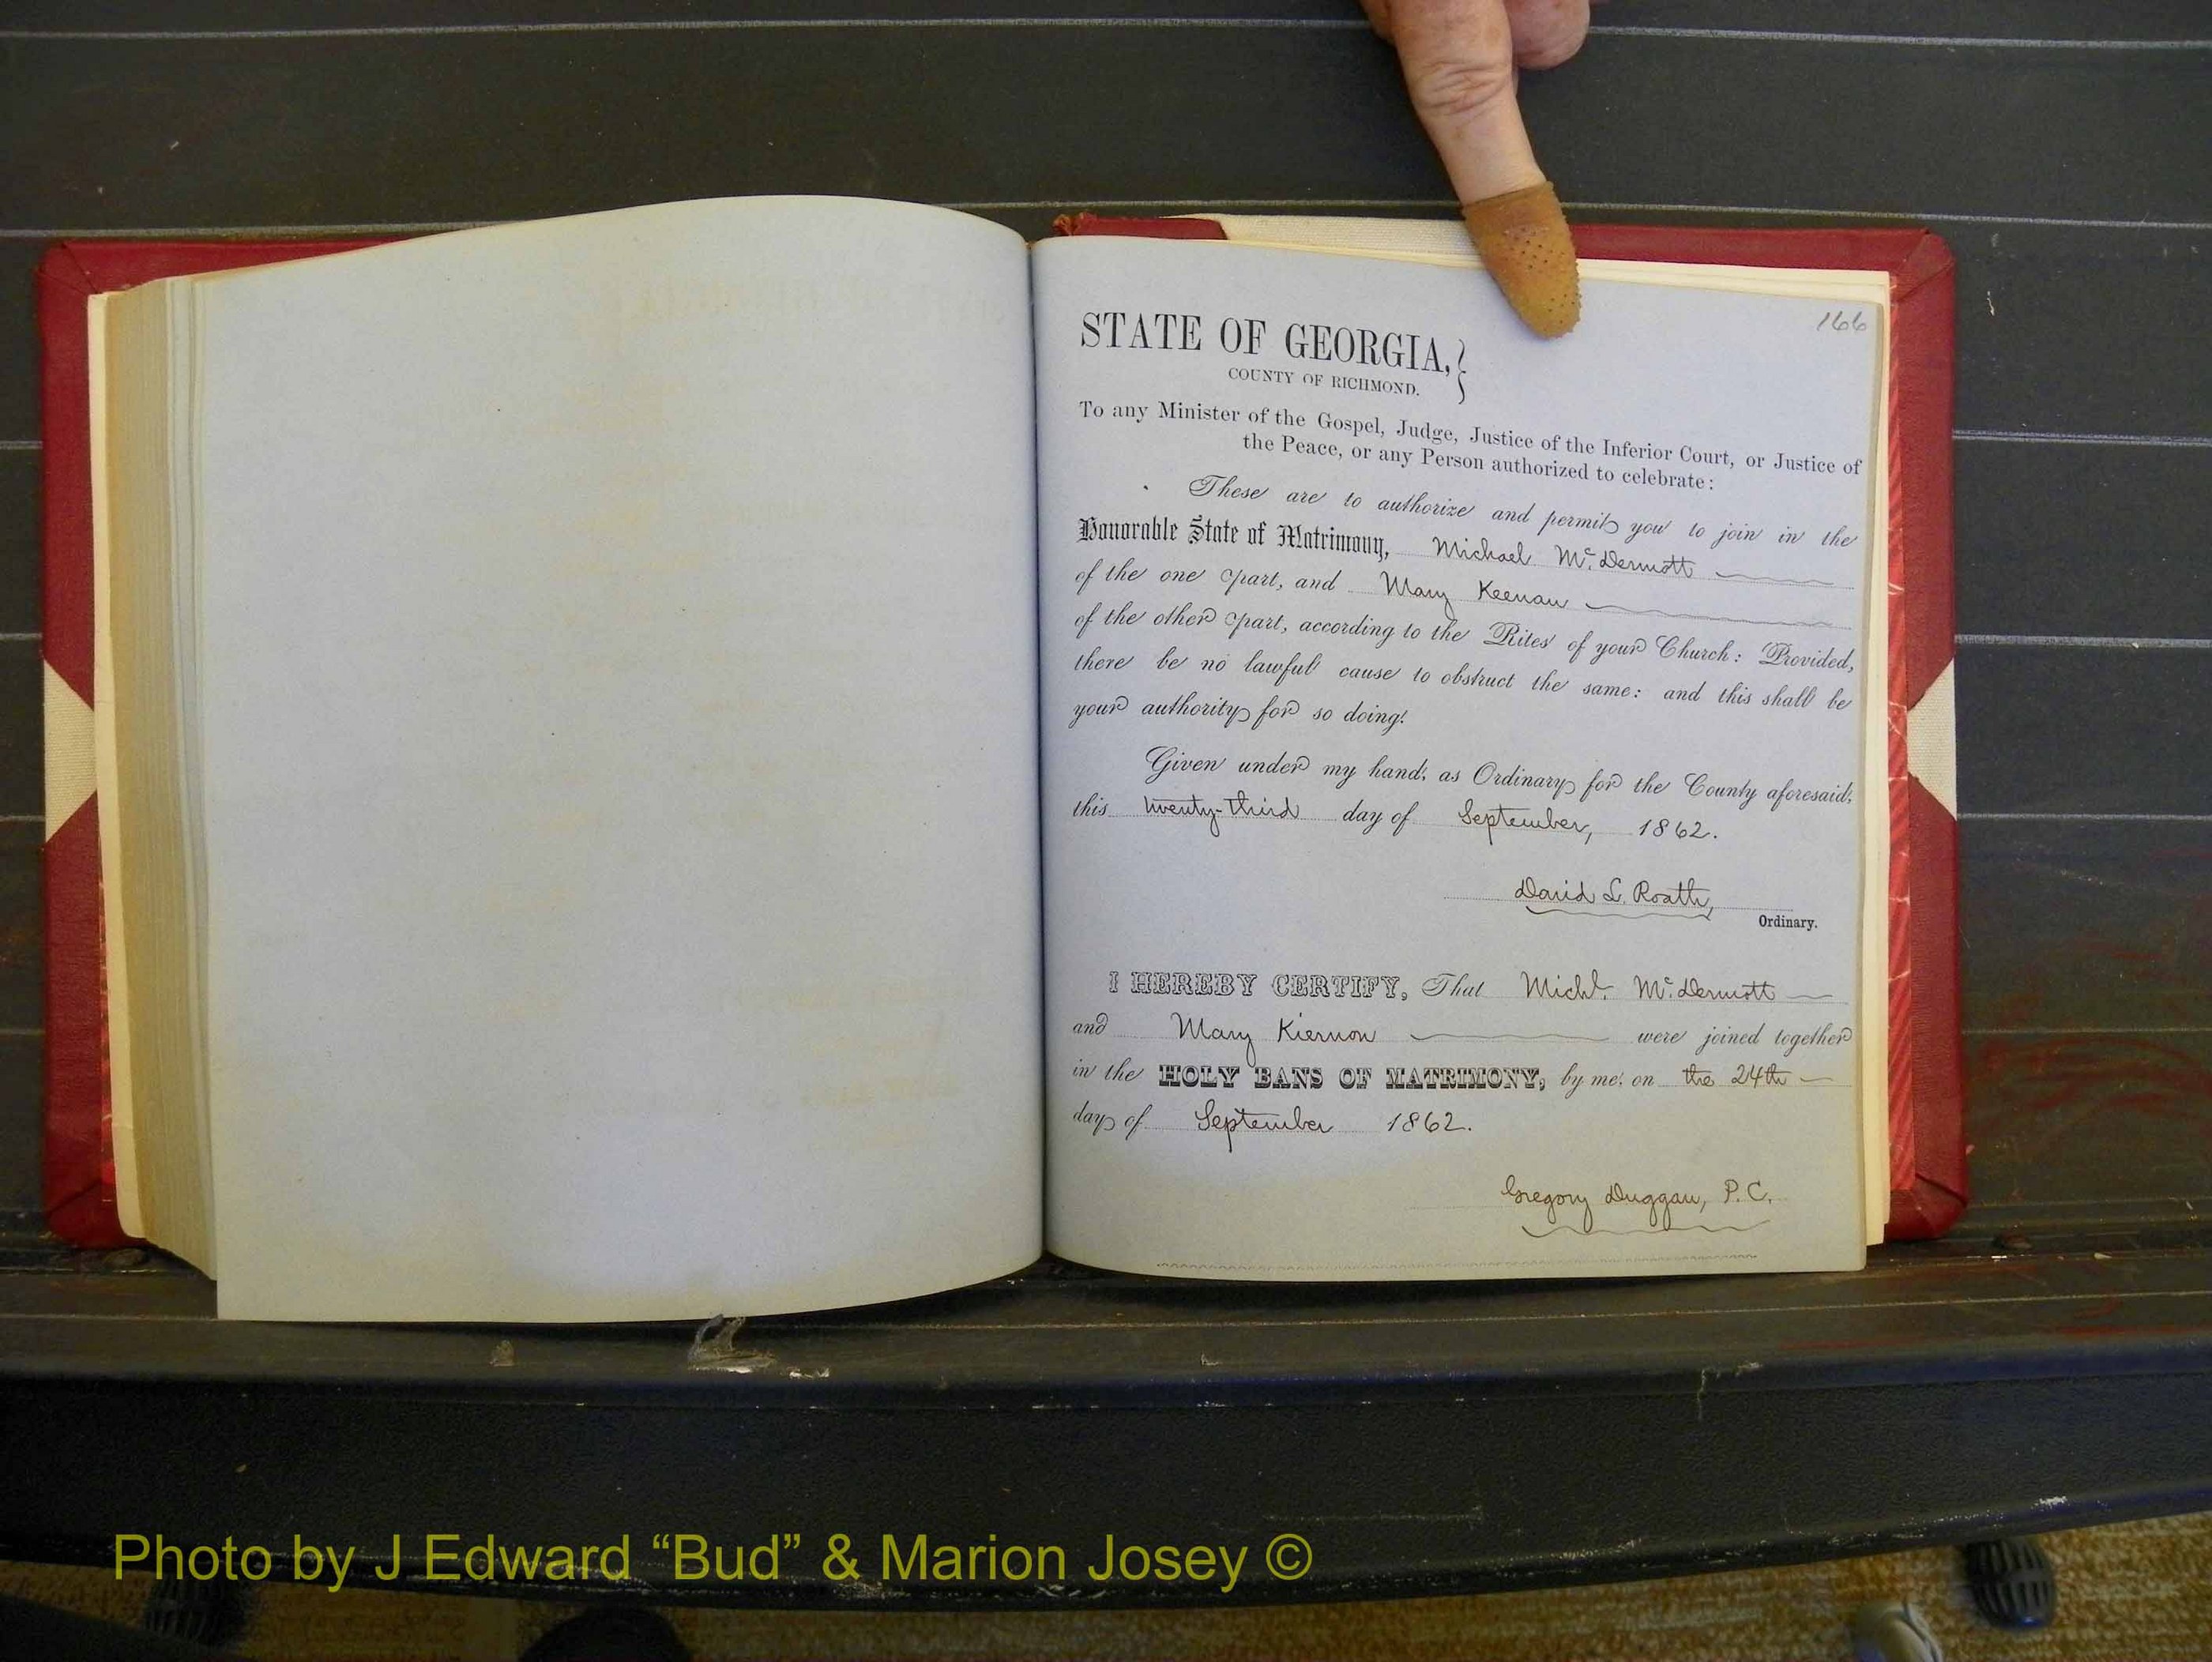 166
STATE OF GEORGIA,
COUNTY OF RICHMOND.
To any Minister of the Gospel, Judge, Justice of the Inferior Court, or Justice of
the Peace, or any Person authorized to celebrate:
These are to authorize and permit you to join in the
Honorable State of Matrimony, Michael McDermott
of the one part, and Mary Keenan
of the other part, according to the Rites of your Church: Provided,
there be no lawful cause to obstruct the same: and this shall be
your authority for so doing.
Given under my hand, as Ordinary for the County aforesaid,
this twenty-third day of September, 1862.
David L. Roath,
Ordinary.
I HEREBY CERTIFY, That Michl. McDermott
and Mary Kiernon were joined together
in the HOLY BANS OF MATRIMONY, by me, on the 24th
day of September 1862.
Gregory Duggan, P.C.
Photo by J Edward “Bud” & Marion Josey ©